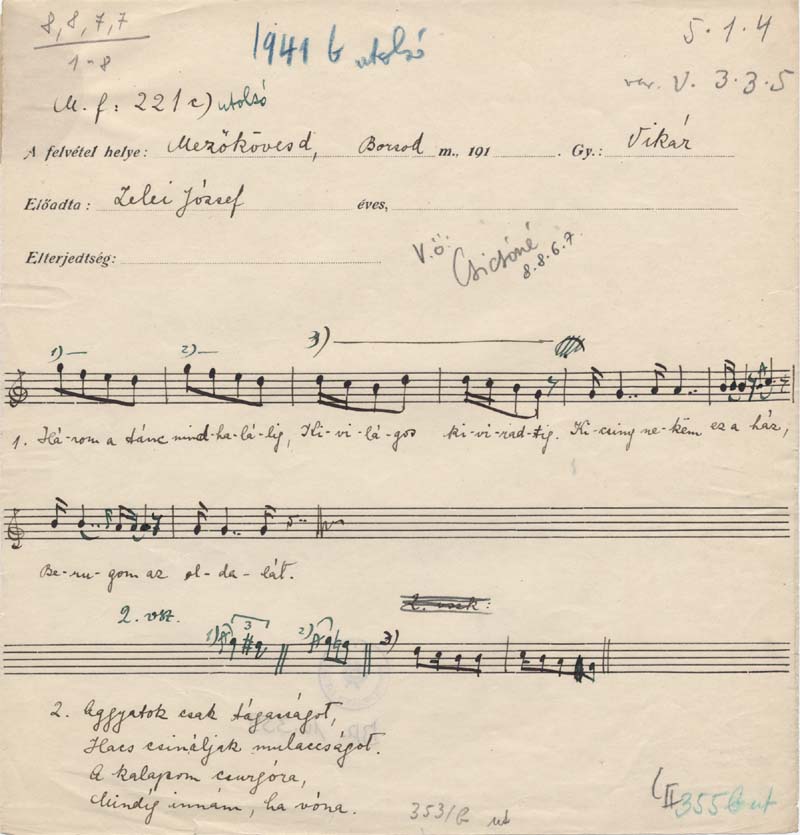 8, 8, 7, 7
1-8
1941 b utolsó
5·1·4
var. V. 3·3·5
M. f: 221c) utolsó
A felvétel helye: Mezőkövesd, Borsod m., 191 . Gy.: Vikár
Előadta: Zelei József éves,
Elterjedtség:
V.ö. Csicsóné
8.8.6.7.
1) 2) 3)
1. Há-rom a tánc mind-ha-lá-lig, Ki-vi-lá-gos ki-vi-rad-tig. Ki-csiny ne-këm ez a ház,
Be-ru-gom az ol-da-lát.
2. vsz.
1) 3 2) 3)
2. Aggyatok csak tágasságot,
Hacs csináljak mulaccságot.
A kalapom csurgóra,
Mindig innám, ha vóna.
353/b ut
II 355 b ut